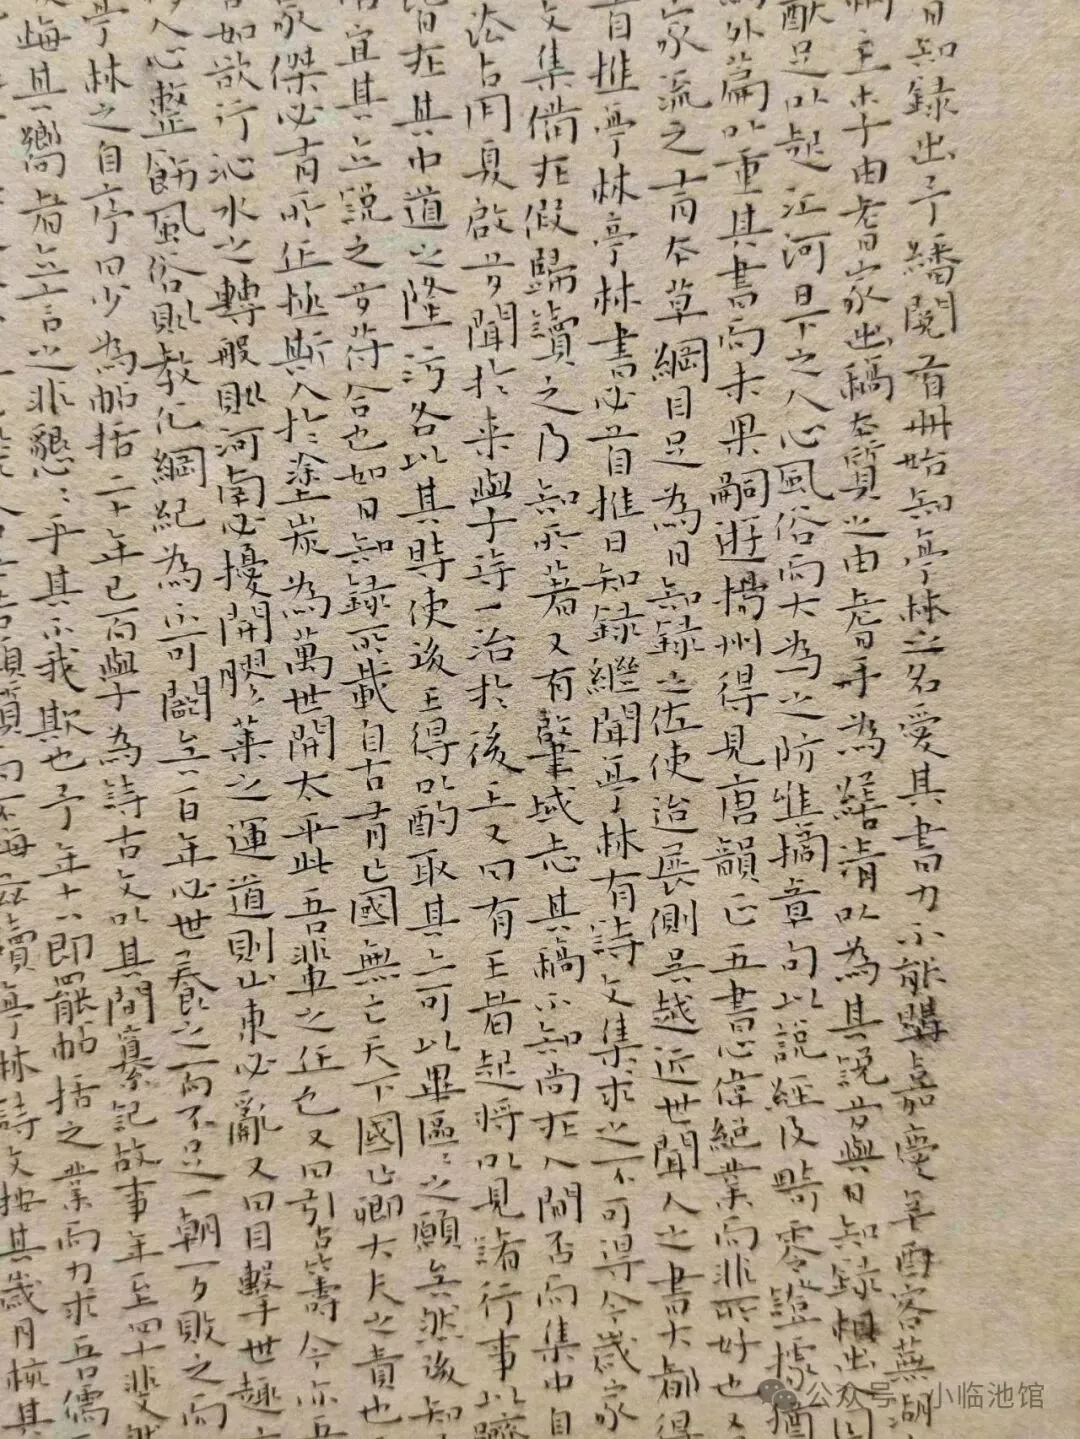 日知錄出予繙閱首冊始知亭林之名愛其書力不能購嘉慶辛酉客蕪湖
主李子由耆家出稿本質之由耆手為繕清以為其說芳與日知錄相出
足以起江河日下之人心風俗而大為之防惟摘章句以說經及畸零證據猶
外篇以重其書而未果嗣遊揚州得見唐韻正五書心偉絕業而非所好也又
家流之言有本草綱目足為日知錄之佐使迨展側吳越近世聞人之書大都得
首推亭林亭林書必首推日知錄繼聞亭林有詩文集求之不可得今歲家
文集備在假歸讀之乃知所著又有肇域志其稿不知尚在人間否而集中自
法占同夏啟多聞於來學待一治於後王又曰有王者起將以見諸行事以躋
皆在其中道之隆污各以其時使後王得以酌取其亦可以畢區之願矣然後知
宜其立說之多符合也如日知錄所載自古有亡國無亡天下國亡卿大夫之責也
家傑必有所任拯斯人於塗炭為萬世開太平此吾輩之任也又曰引古籌今亦吾
如欲行沁水之轉般則河南必擾開膠萊之運道則山東必亂又曰目擊世趨
人心整飭風俗則教化綱紀為不可闕矣百年必世養之而不足一朝一夕敗之而
亭林之自序曰少為帖括二十年已而學為詩古文以其間纂記故事年至四十斐然
悔其嚮者立言之非懇懇乎其不我欺也予年十八即罷帖括之業而力求吾儒
讀亭林詩文按其歲月核其
公众号·小临池馆